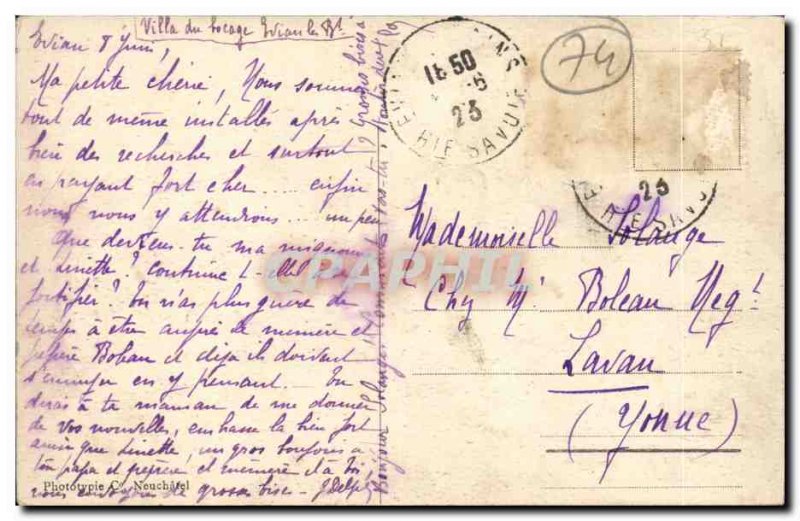 Villa du bocage Evian les Bs
Evian 8 Juin,
Ma petite chérie, Nous sommes
tout de même installés après
bien des recherches et surtout
en payant fort cher... enfin
nous nous y attendions... un peu
Que deviens-tu ma mignonne
et Linette? continue t-elle à se
fortifier? Tu n'as plus guère de
temps à être auprès de mémère et
pépère Boleau et déjà ils doivent
s'ennuyer en y pensant. Tu
diras à ta maman de me donner
de vos nouvelles, embrasse la bien fort
ainsi que Linette, un gros bonjour à
ton papa et pépère et mémère et à toi
nous envoyons de grosses bises - J. Delpy
Bonjour Solange! Comment vas-tu? Grosses bises
18 50
-6
23
HTE SAVOIE
74
23
HTE SAVOIE
Mademoiselle Solange
Chez Mr Boleau Negt
Lavau
(Yonne)
CPAPHIL
Phototypie Co Neuchâtel